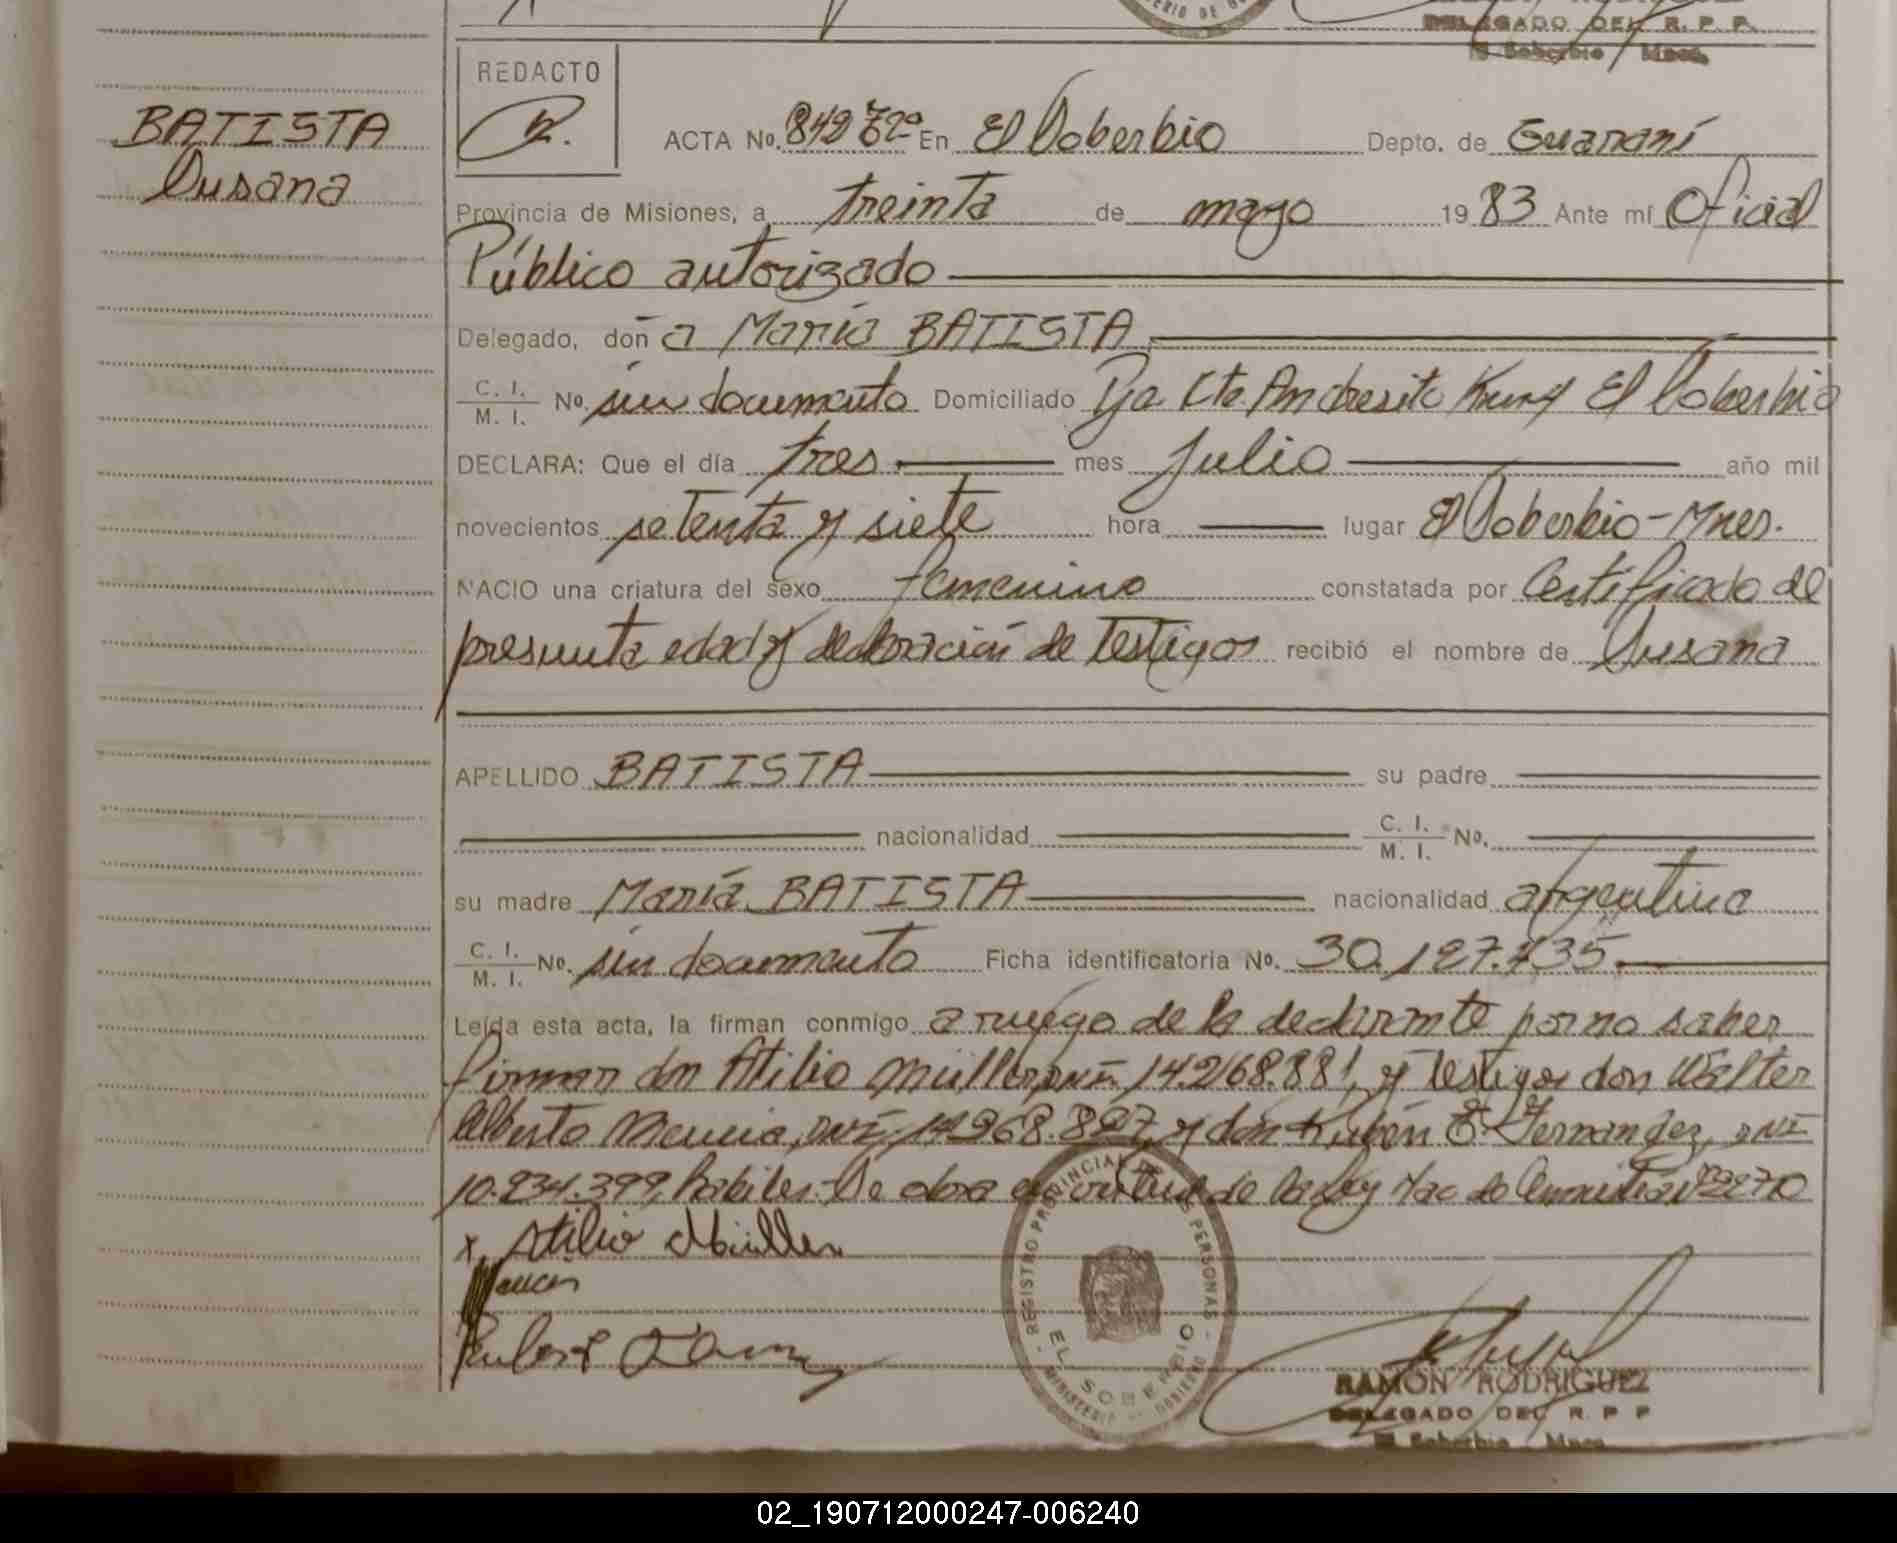 DELEGADO DEL R. P. P.
El Soberbio Mnes.
REDACTO
BATISTA
Susana
ACTA No. 849 Tº En El Soberbio Depto. de Guaraní
Provincia de Misiones, a treinta de mayo 19 83 Ante mí Oficial
Público autorizado
Delegado, doña María BATISTA
C. I. M. I. No. sin documento Domiciliado Andresito El Soberbio
DECLARA: Que el día tres mes julio año mil
novecientos setenta y siete hora lugar El Soberbio-Mnes.
NACIO una criatura del sexo femenino constatada por Certificado de
presunta edad y declaración de testigos recibió el nombre de Susana
APELLIDO BATISTA su padre
nacionalidad C. I. M. I. No.
su madre María BATISTA nacionalidad argentina
C. I. M. I. No. sin documento Ficha identificatoria No. 30.127.435.
Leída esta acta, la firman conmigo a ruego de la declarante por no saber
firmar don Atilio Müller, DNI 14.268.881, y testigos don Walter
Alberto DNI y don Rubén E. Fernandez, DNI
10.234.399, hábiles. Se obra en virtud de la Ley Nac de Amnistía
x Atilio Müller
REGISTRO PROVINCIAL DE LAS PERSONAS
MINISTERIO DE GOBIERNO
EL SOBERBIO
RAMON RODRIGUEZ
DELEGADO DEL R. P. P.
El Soberbio Mnes.
02_190712000247-006240